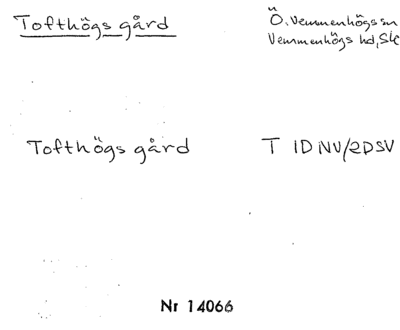 Tofthögs gård
Ö. Vemmenhögs sn
Vemmenhögs hd, Sk
Tofthögs gård T 1D NV/2D SV
Nr 14066